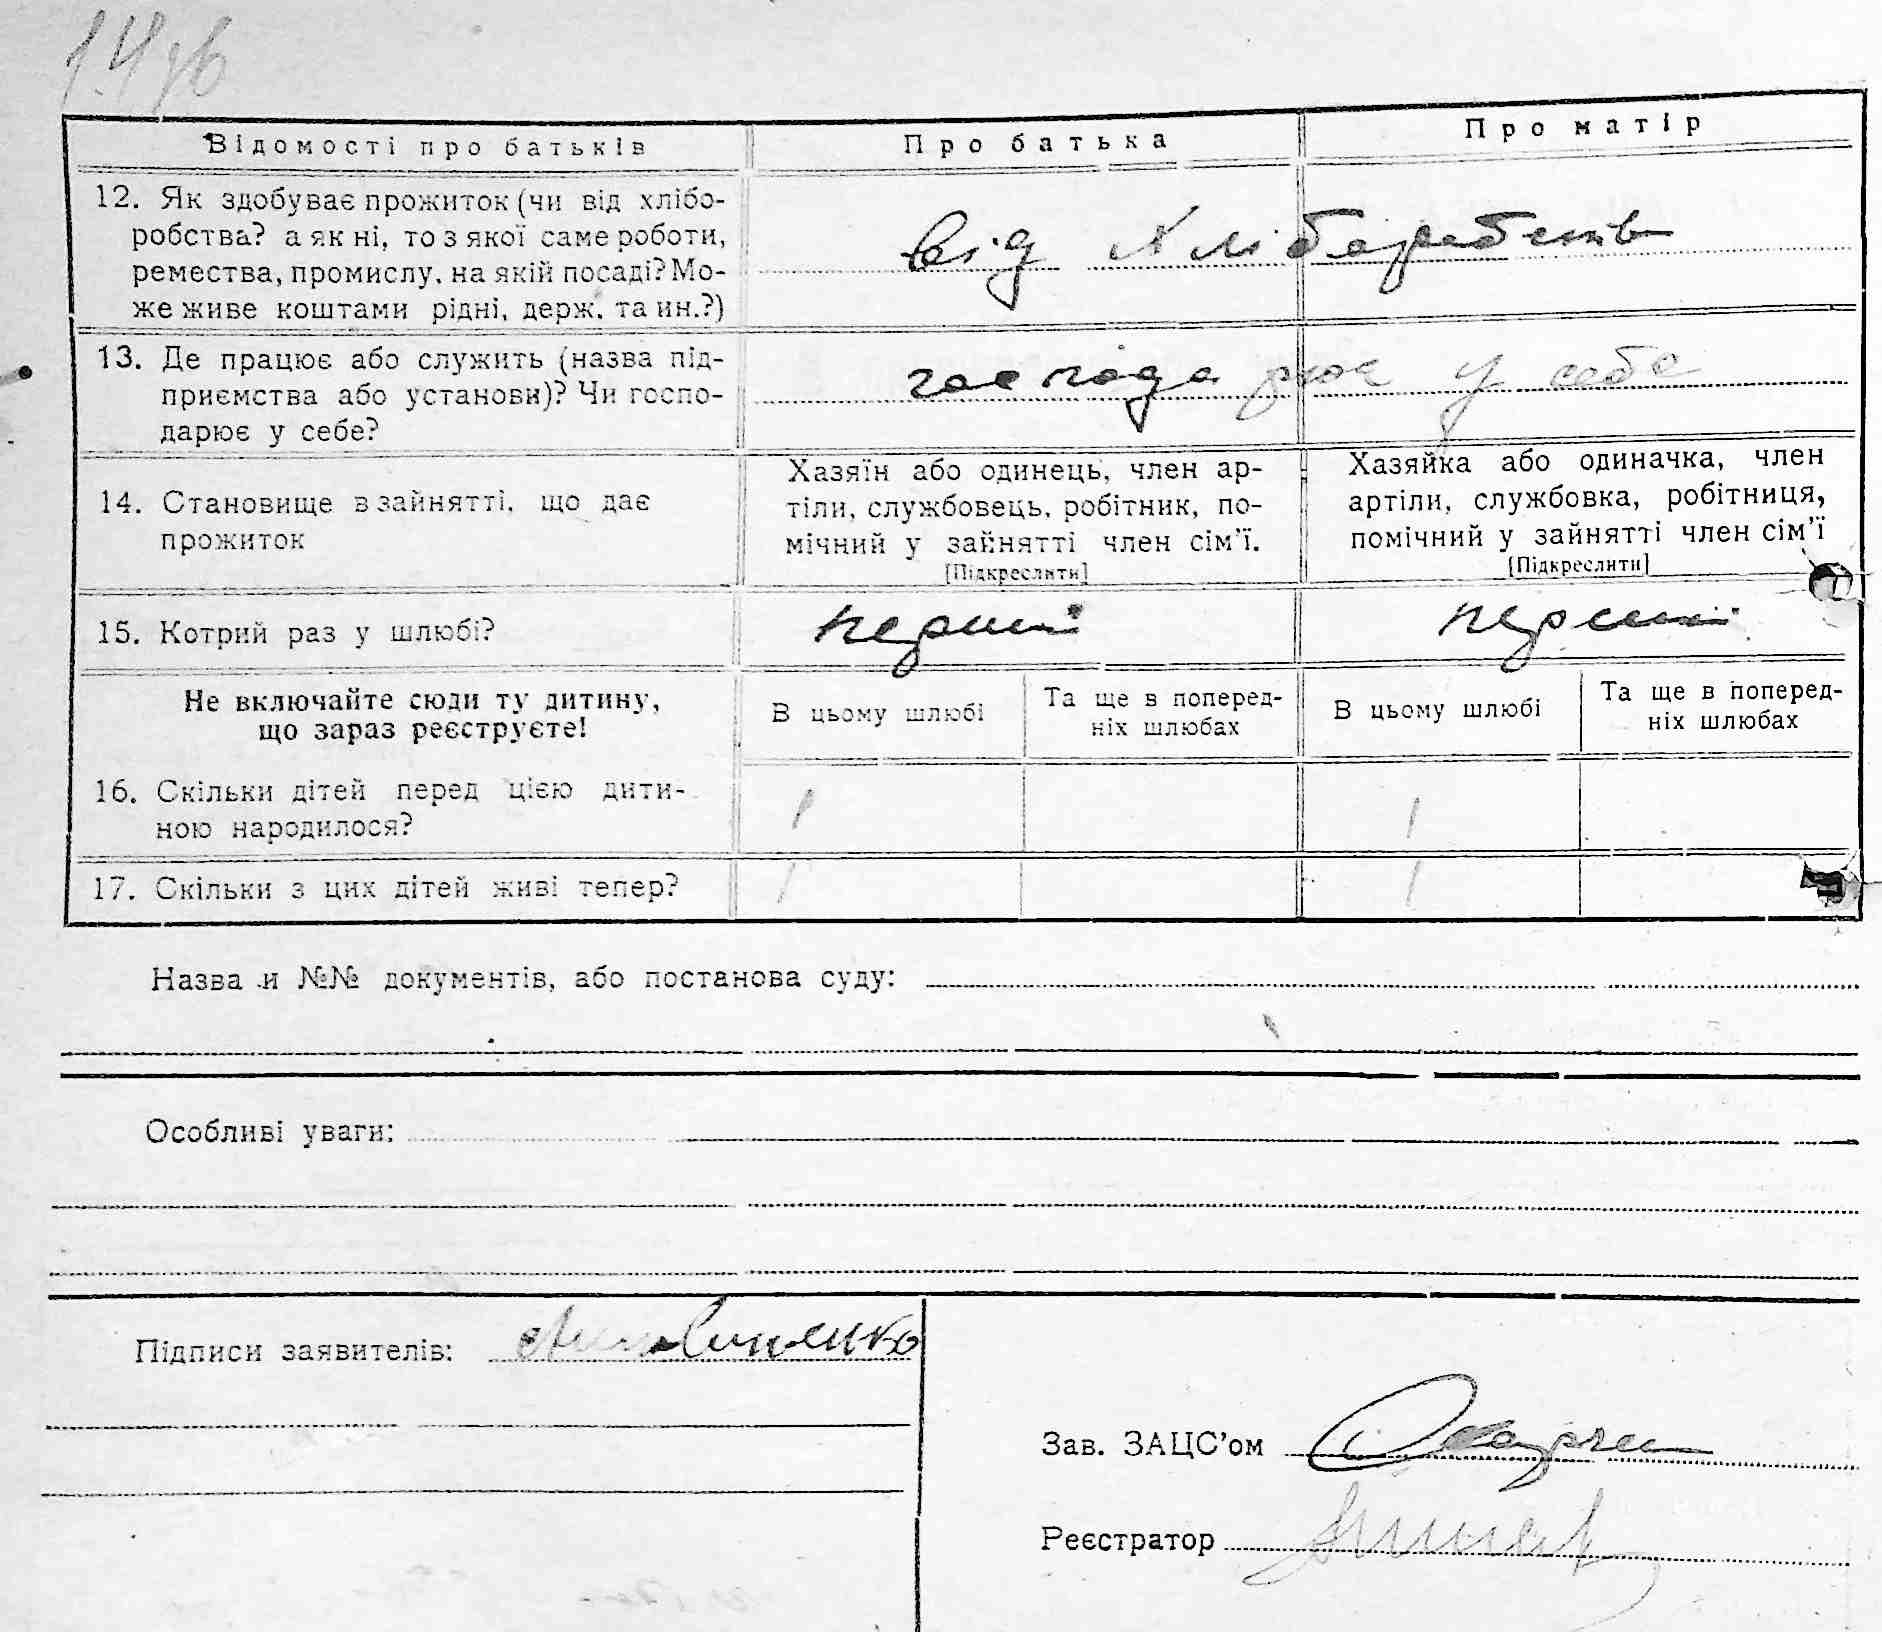 Відомості про батьків
Про батька
Про матір
12. Як здобуває прожиток (чи від хлібо-
робства? а як ні, то з якої саме роботи,
ремества, промислу, на якій посаді? Мо-
же живе коштами рідні, держ. та ин.?)
від хліборобства
13. Де працює або служить (назва під-
приємства або установи)? Чи госпо-
дарює у себе?
господарює у себе
14. Становище в зайнятті, що дає
прожиток
Хазяїн або одинець, член ар-
тіли, службовець, робітник, по-
мічний у зайнятті член сім'ї.
[Підкреслити]
Хазяйка або одиначка, член
артіли, службовка, робітниця,
помічний у зайнятті член сім'ї
[Підкреслити]
15. Котрий раз у шлюбі?
перший
перший
Не включайте сюди ту дитину,
що зараз реєструєте!
В цьому шлюбі
Та ще в поперед-
ніх шлюбах
В цьому шлюбі
Та ще в поперед-
ніх шлюбах
16. Скільки дітей перед цією дити-
ною народилося?
1
1
17. Скільки з цих дітей живі тепер?
1
1
Назва и №№ документів, або постанова суду:
Особливі уваги:
Підписи заявителів:
Зав. ЗАЦС'ом
Реєстратор